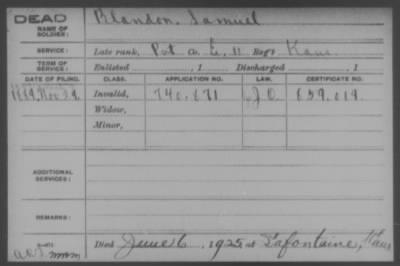 DEAD Blandon, Samuel
NAME OF SOLDIER:
SERVICE: Late rank, Pvt Co. E, 11 Reg't Kans.
TERM OF SERVICE: Enlisted , 1 Discharged , 1
DATE OF FILING. CLASS. APPLICATION NO. LAW. CERTIFICATE NO.
1889, Nov 29. Invalid, 740.671 J.O. 659.019
Widow,
Minor,
ADDITIONAL SERVICES:
REMARKS:
Died June 6, 1925, at Lafontaine, Kans